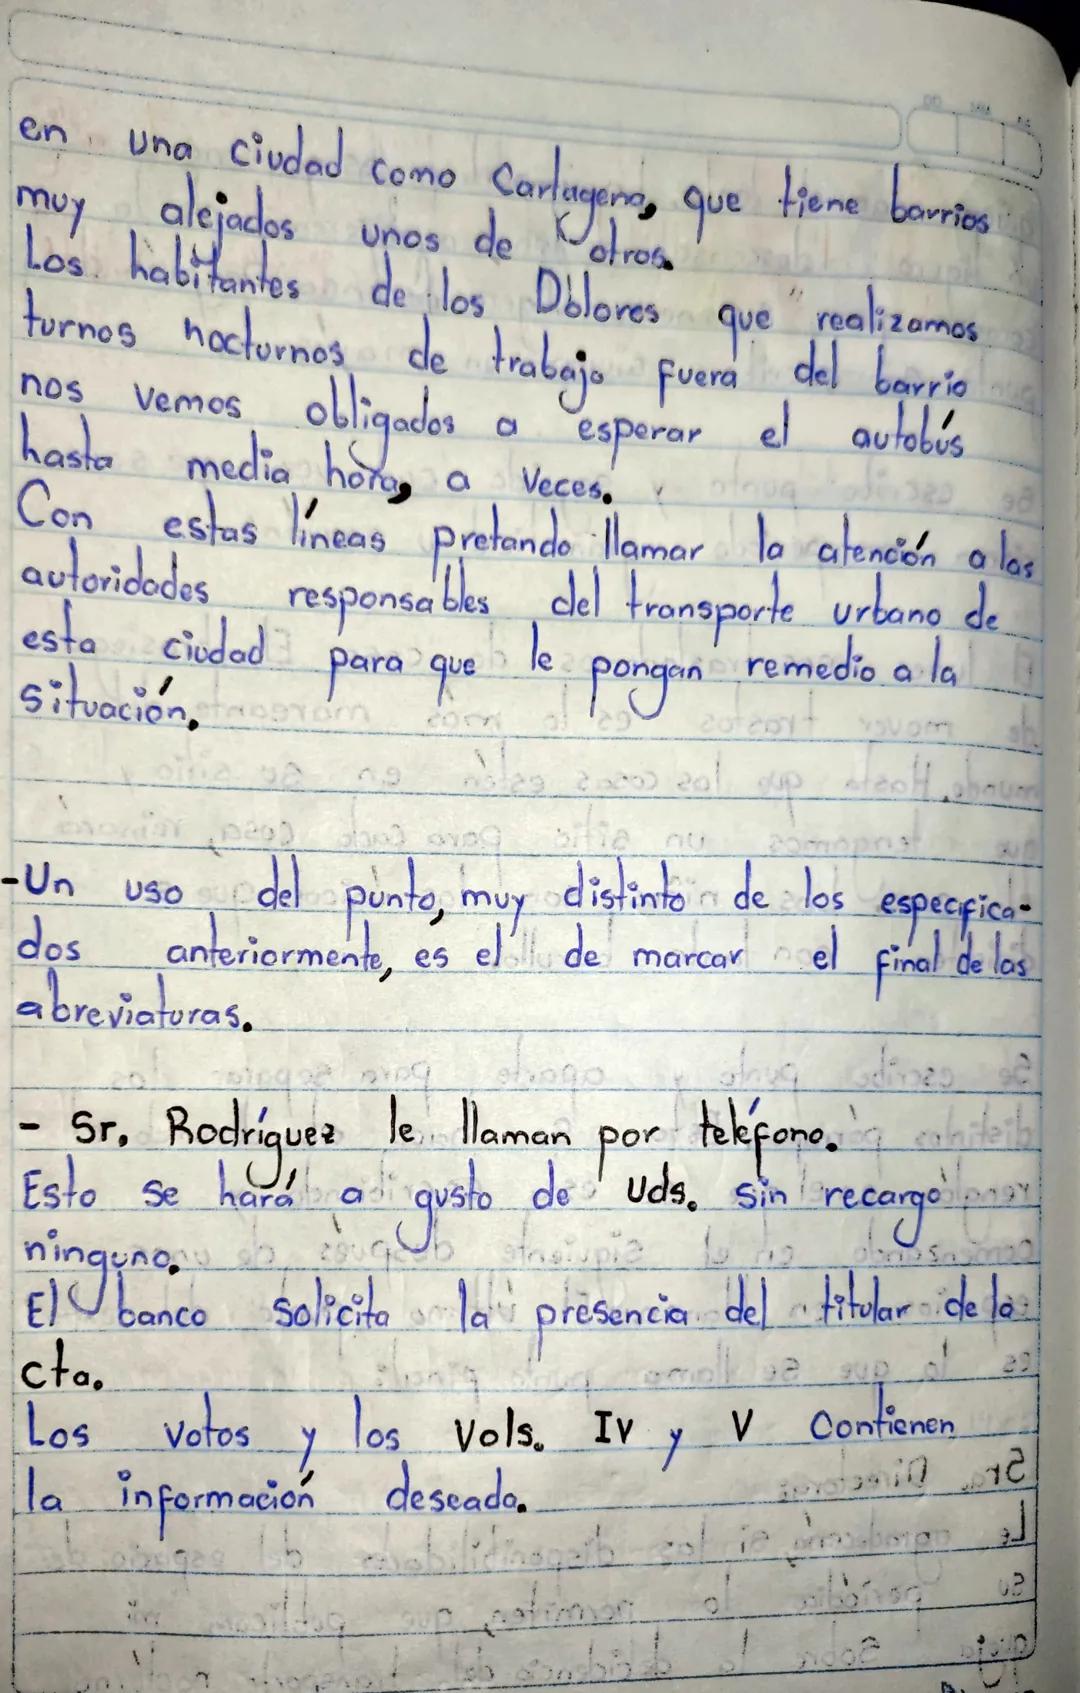 en una ciudad como Cartagena, que tiene barrios
muy alejados unos de otros.
Los habitantes de los Dolores que realizamos
turnos nocturnos de trabajo fuera del barrio
nos vemos obligados a esperar el autobús
hasta media hora, a veces.
Con estas líneas pretando llamar la atención a las
autoridades responsables del transporte urbano de
esta ciudad para que le pongan remedio a la
situación.
-Un uso del punto, muy distinto de los especifica-
dos anteriormente, es el de marcar el final de las
abreviaturas.
- Sr. Rodríguez le llaman por teléfono.
Esto se hará a gusto de Uds. sin recargo
ninguno.
El banco solicita la presencia del titular de la
cta.
Los votos y los Vols. IV y V Contienen
la información deseada.